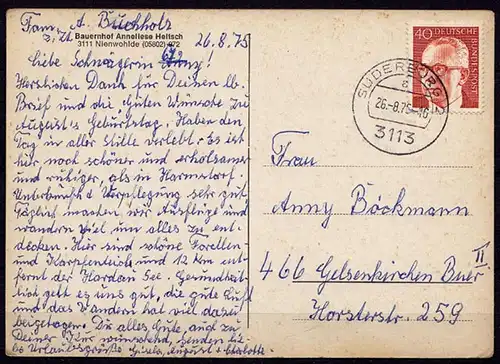 Fam. A. Buchholz
z. Zt. Bauernhof Anneliese Heitsch
3111 Nienwohlde (05802) 472
26.8.75
Liebe Schwägerin Anny!
Herzlichen Dank für Deinen lb.
Brief und die guten Wünsche zu
August's Geburtstag. Haben den
Tag in aller Stille verlebt. Es ist
hier noch schöner und erholsamer
und ruhiger, als in Harmsdorf.
Unterkunft u. Verpflegung sehr gut.
Täglich machen wir Ausflüge und
wandern viel um alles zu ent-
decken. Hier sind schöne Forellen-
und Karpfenteich und 12 Km ent-
fernt der Hardau See. Gesundheit-
lich geht es uns gut, die gute Luft
und das Wandern hat viel dazu
beigetragen. Dir alles Gute, auch zu
Deiner Kur wünschend, senden
Urlaubsgrüße Gisela, August + Charlotte
40 DEUTSCHE BUNDESPOST
SUDERBURG
a
26.-8.75-16
3113
Frau
Anny Böckmann
466 Gelsenkirchen Buer II
Horsterstr. 259